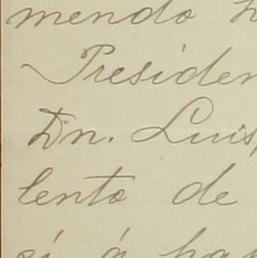 mendo
Presiden
Dn. Luis
lento de
sí á hap